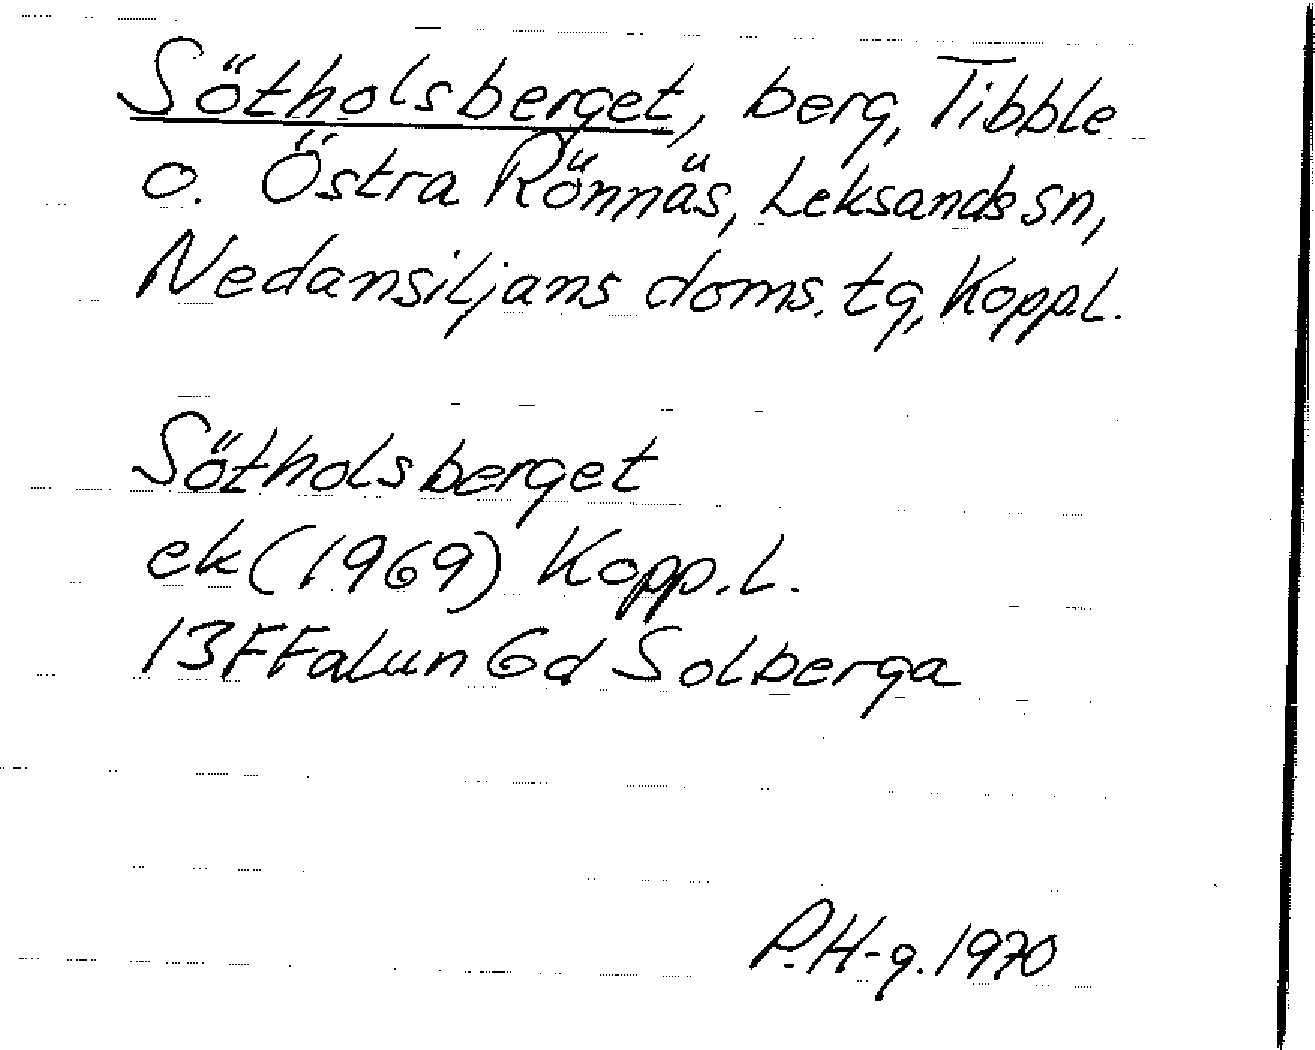 Sötholsberget, berg, Tibble
o. Östra Rönnäs, Leksands sn,
Nedansiljans doms. tg, Kopp.l.
Sötholsberget
ek (1969) Kopp.l.
13F Falun 6d Solberga
P.H-g. 1970